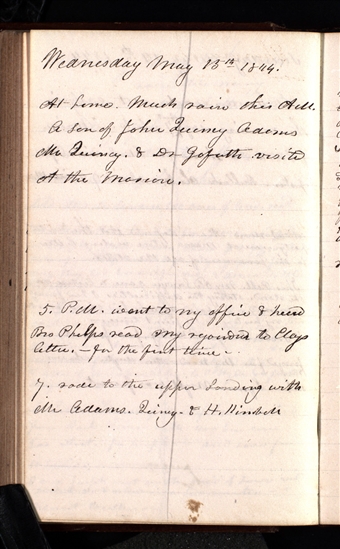 Wednesday May 15th 1844.
At home. Much rain this A.M.
A son of John Quincy Adams
Mr Quincy. & Dr Goforth visite
at the Mansion.
5. P.M. went to my office & heard
Bro Phelps read my rejoinder to Clays
letter. — for the first time —
7. rode to the upper Landing with
Mr Adams. Quincy. & H. Kimball